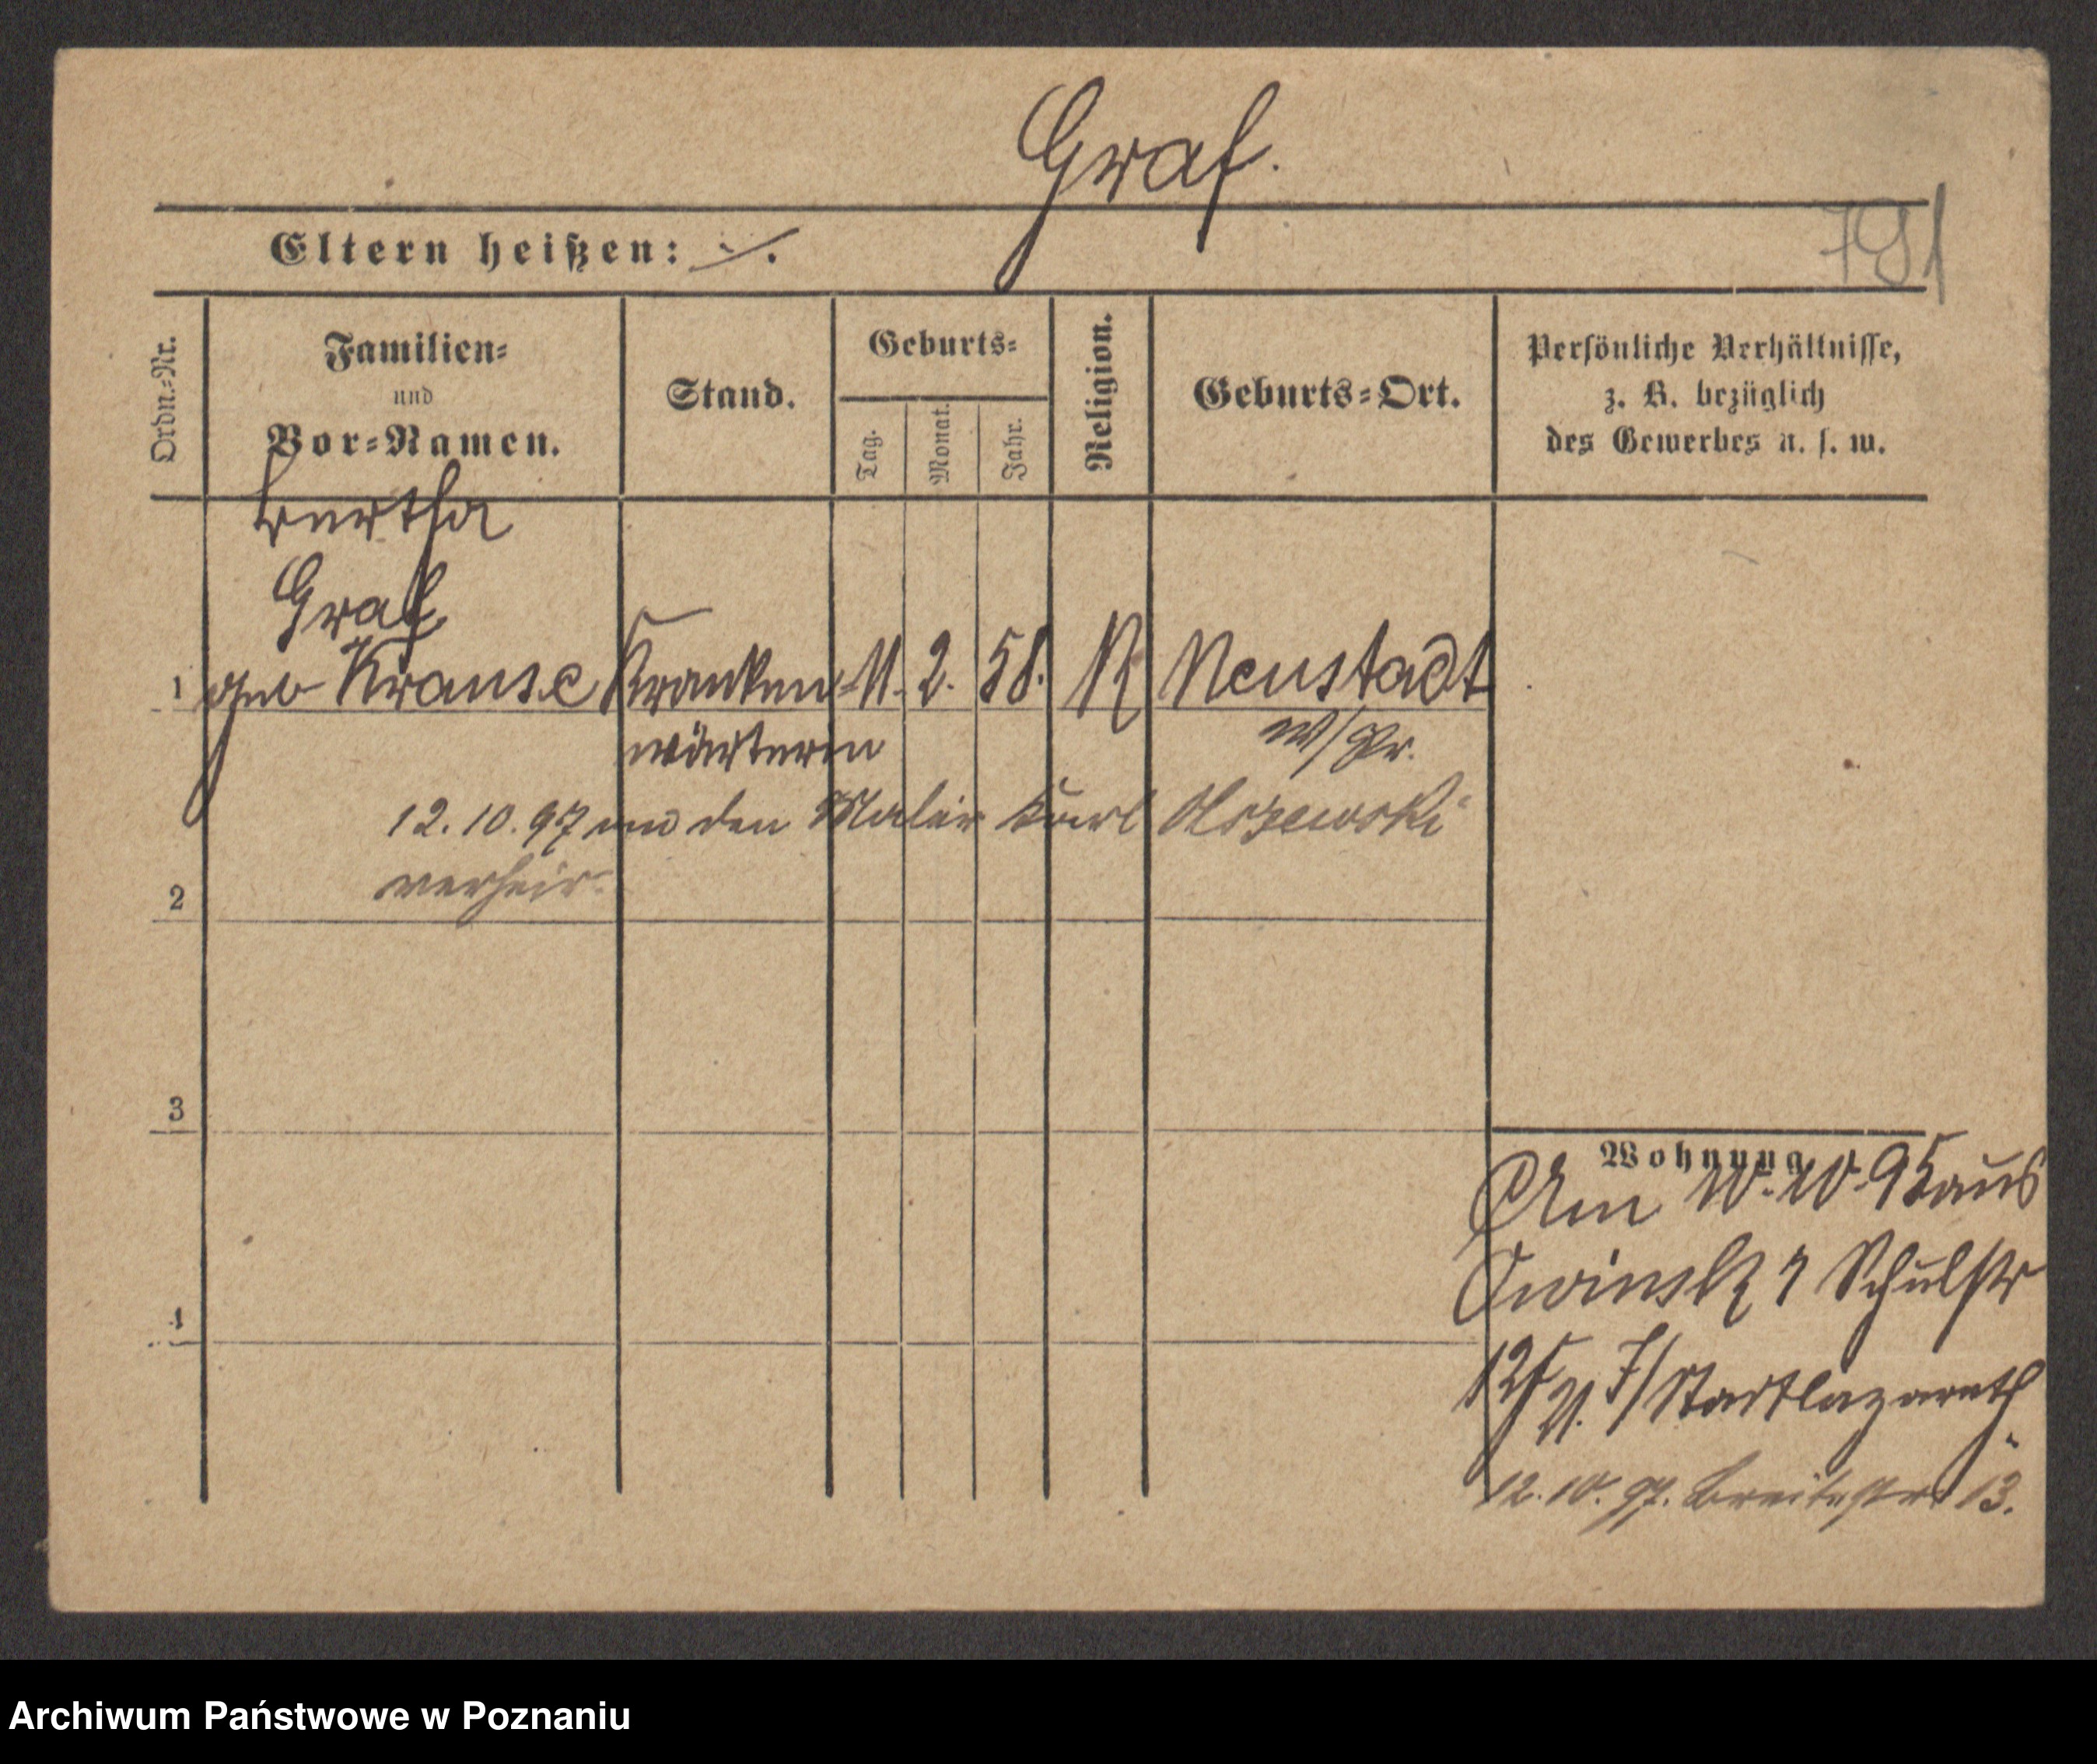 Graf.
Eltern heißen: ./.
791
Ordn.=Nr.
Familien=
und
Vor=Namen.
Stand.
Geburts=
Tag.
Monat.
Jahr.
Religion.
Geburts=Ort.
Persönliche Verhältnisse,
z. B. bezüglich
des Gewerbes u. s. w.
Bertha
Graf
1 geb Krause Kranken= 11. 2. 58. K Neustadt
wärterin W/Pr.
12.10.97 den Maler Karl Olszewski
verheir.
2
3
4
Wohnung
Am 10.10.95 aus
Owinsk Schulstr
12/ Stadtlazareth
12.10.97. Breitestr. 13.
Archiwum Państwowe w Poznaniu